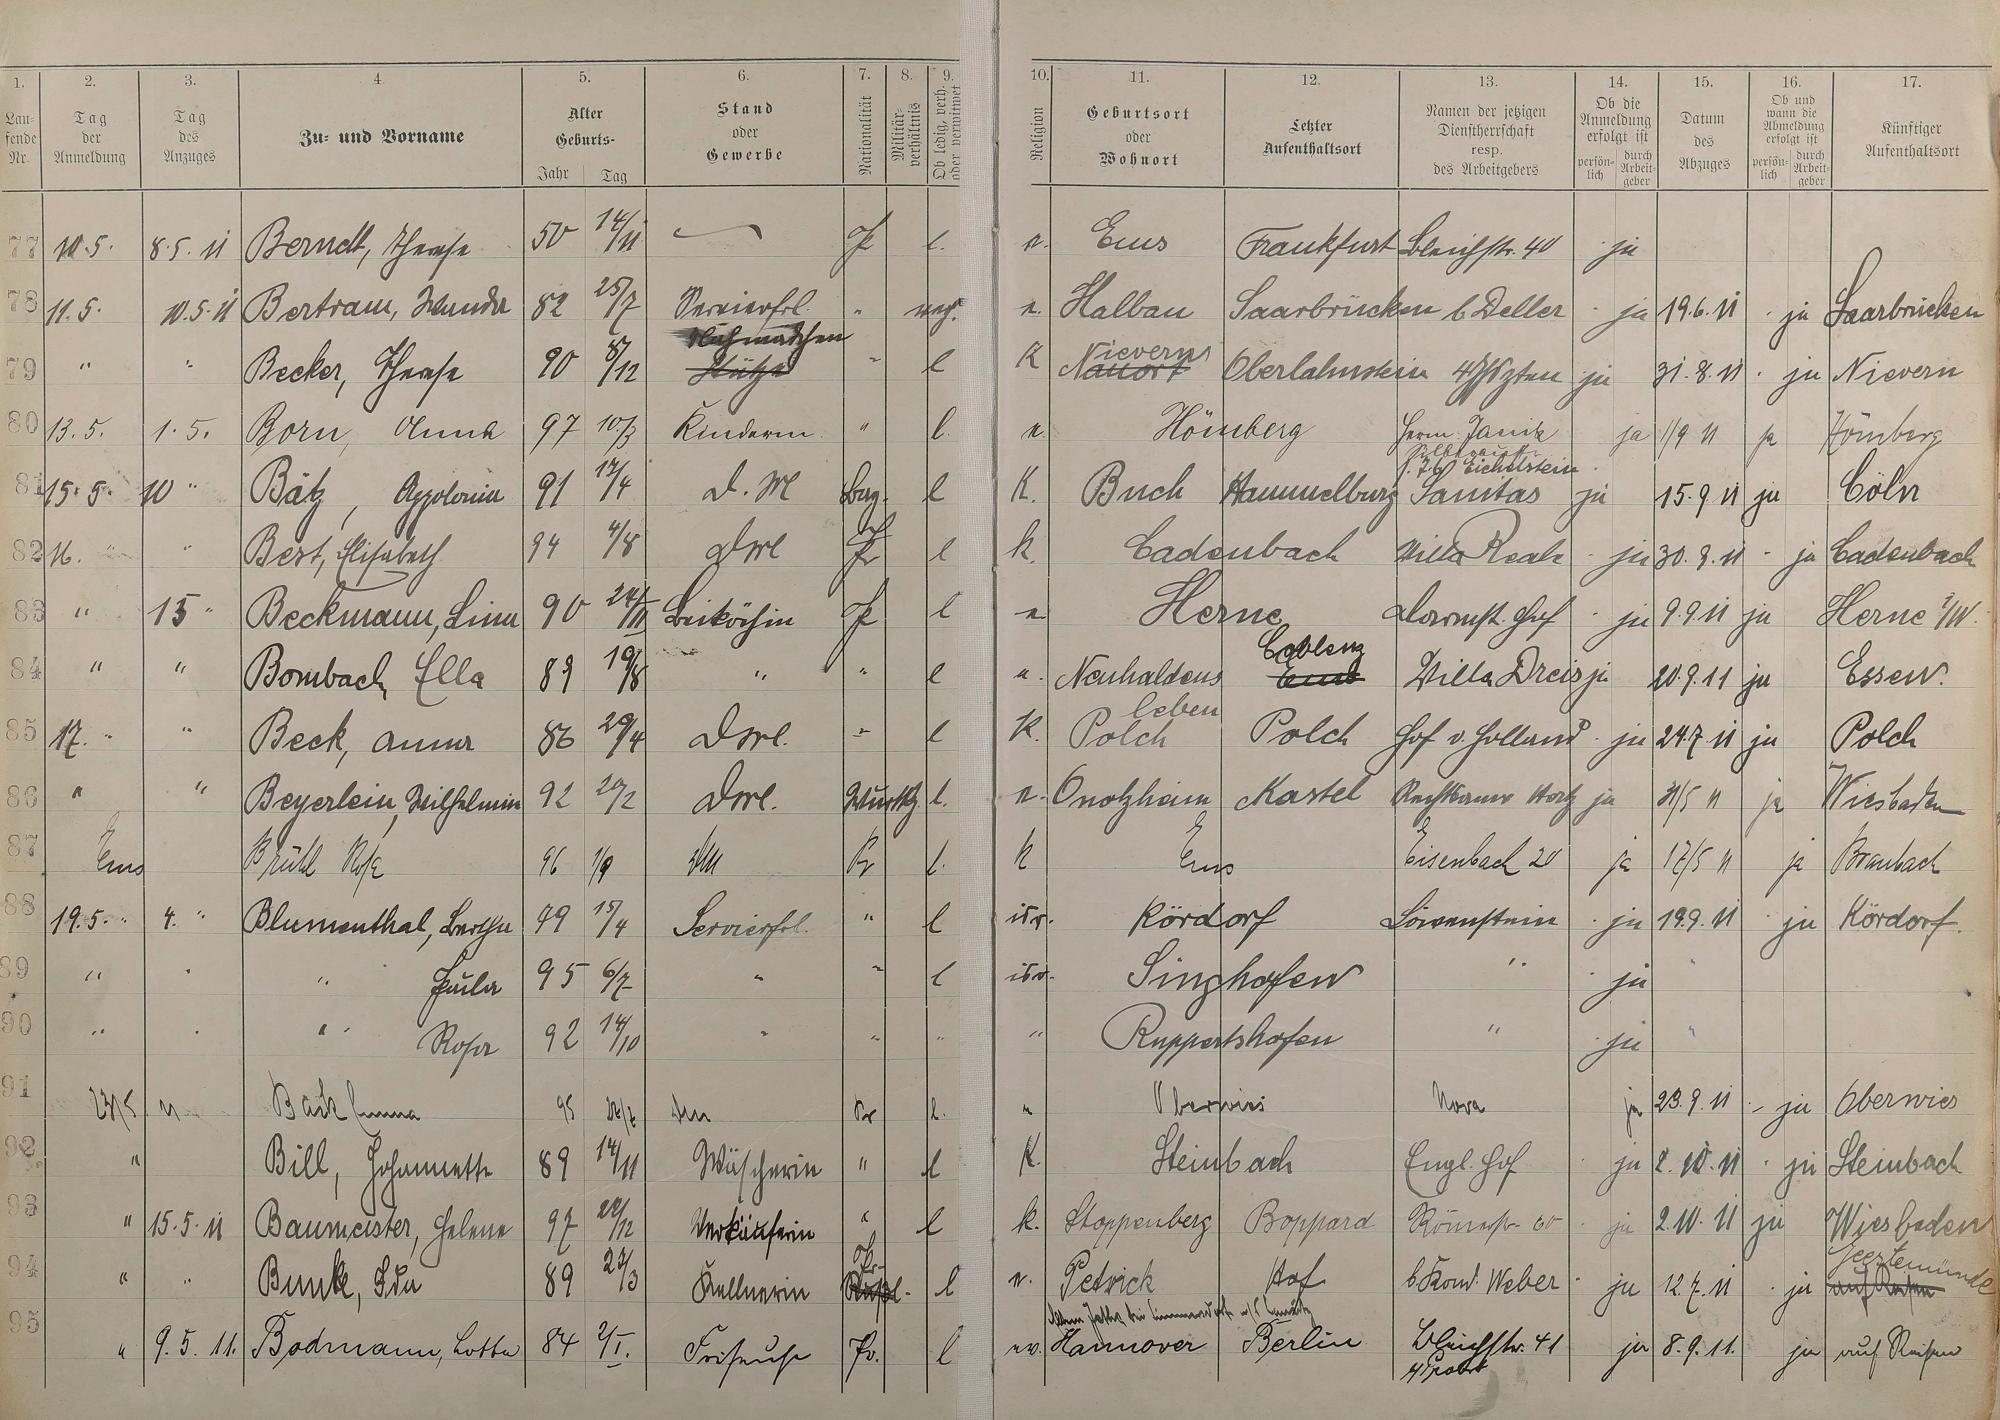 1. 2. 3. 4. 5. 6. 7. 8. 9. 10. 11. 12. 13. 14. 15. 16. 17.
Lau- fende Nr. Tag der Anmeldung Tag des Anzuges Zu- und Vorname Alter Geburts- Jahr Tag Stand oder Gewerbe Nationalität Militär- verhältnis Ob ledig, verh. oder verwitwet Religion Geburtsort oder Wohnort Letzter Aufenthaltsort Namen der jetzigen Dienstherrschaft resp. des Arbeitgebers Ob die Anmeldung erfolgt ist persön- lich durch Arbeit- geber Datum des Abzuges Ob und wann die Abmeldung erfolgt ist persön- lich durch Arbeit- geber Künftiger Aufenthaltsort
77 10.5. 8.5.11 Berndt, Therese 50 14/11 Pr l. e. Ems Frankfurt Bleichstr. 40 ja
78 11.5. 10.5.11 Bertram, Wanda 82 25/7 Servierfrl. " e. Halbau Saarbrücken b Deller ja 19.6.11 ja Saarbrücken
79 " " Becker, Therese 90 /12 Stütze " l K Nauort Nievern Oberlahnstein 4 Jahrzten ja 31.8.11 ja Nievern
80 13.5. 1.5. Born, Anna 97 10/3 Kinderm. " l. e. Hömberg Herm. Janik ja 1/9 11 ja Hömberg
81 15.5. 10 " Bätz, Appolonia 91 17/4 D.M Bay. l K. Buch Hammelburg Eichelstein Sanitas ja 15.9.11 ja Cöln
82 16. " " Best, Elisabeth 94 4/8 Dml Pr l k. Cadenbach Villa Reale ja 30.9.11 ja Cadenbach
83 " 15 " Beckmann, Lina 90 24/11 Beiköchin Pr l e Herne Darmst. Hof ja 9.9.11 ja Herne i/W.
84 " " Bombach, Ella 89 19/8 " " l e. Neuhaldensleben Ems Coblenz Villa Dreis ja 20.9.11 ja Essen.
85 17. " " Beck, Anna 86 29/4 Dml. " l K. Polch Polch Hof v. Holland ja 24.7.11 ja Polch
86 " " Beyerlein, Wilhelmin 92 20/2 Dml. Wurttbg l. e. Onolzheim Kastel Rechtsanw Hertz ja 31/5 11 ja Wiesbaden
87 Ems Brühl Rosa 96 1/9 DM Pr l. k Ems Eisenbach 20 ja 17/5 11 ja Braubach
88 19.5. " 4. " Blumenthal, Bertha 79 15/4 Servierfrl. " l isr. Kördorf Löwenstein ja 19.9.11 ja Kördorf.
89 " " " Paula 95 6/7 " " l isr. Singhofen " ja "
90 " " " Rosa 92 14/10 " " " " Ruppertshofen " ja "
91 23/5 11 Back Emma 95 Pr l. e Oberwies Nova ja 23.9.11 ja Oberwies
92 " Bill, Johannette 89 14/11 Wäscherin " l K. Steinbach Engl. Hof ja 2.10.11 ja Steinbach
93 " 15.5.11 Baumeister, Helene 97 22/12 Verkäuferin " l k. Stoppenberg Boppard Römerstr. 60 ja 2.10.11 ja Wiesbaden
94 " " Bunke, Ida 89 23/3 Kellnerin Rußl. Pr. l e. Petrick Hof b. Kond. Weber ja 12.7.11 ja auf Reisen Geestemünde
95 " 9.5.11. Bodmann, Lotte 84 2/I. Friseuse Pr. l ev. Hannover Berlin Bleichstr. 41 ja 8.9.11. ja auf Reisen